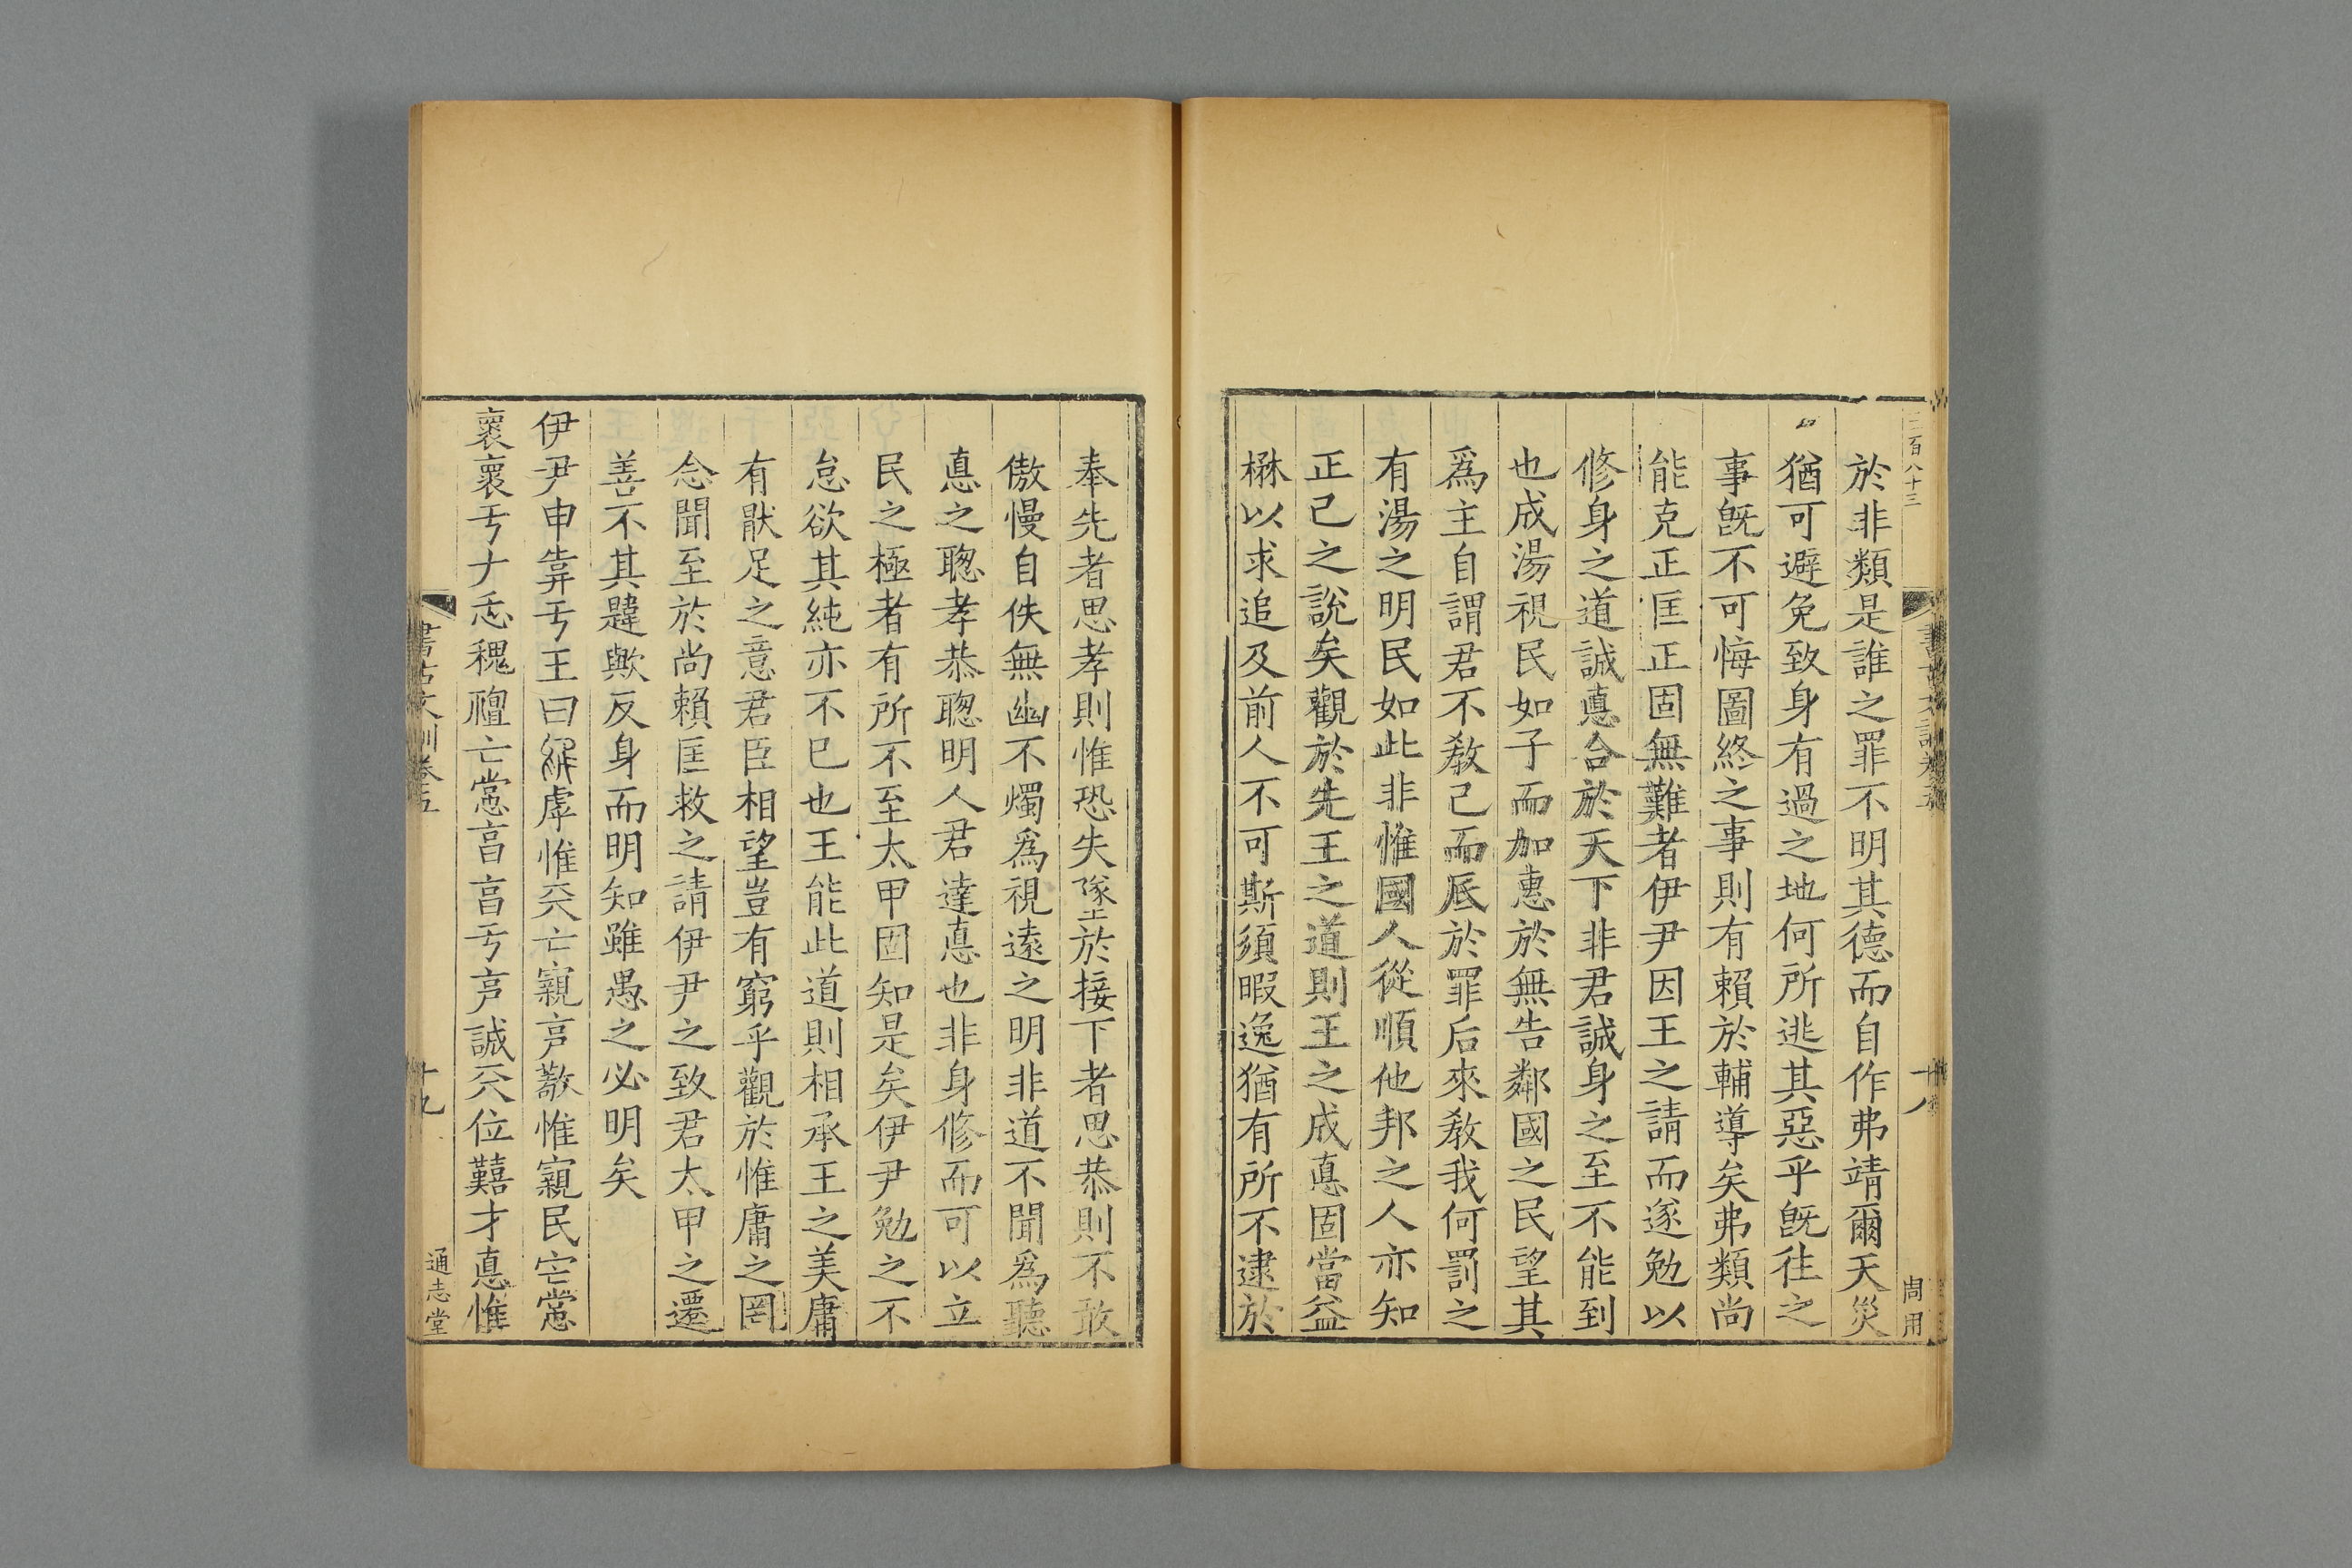 二百八十三
書古文訓卷五
十八
周用
於非類是誰之罪不明其德而自作弗靖爾天災
猶可避免致身有過之地何所逃其惡乎旣往之
事旣不可悔圖終之事則有賴於輔導矣弗類尚
能克正匡正固無難者伊尹因王之請而遂勉以
修身之道誠悳合於天下非君誠身之至不能到
也成湯視民如子而加惠於無告鄰國之民望其
爲主自謂君不敎己而底於罪后來敎我何罰之
有湯之明民如此非惟國人從順他邦之人亦知
正己之說矣觀於先王之道則王之成悳固當益
楙以求追及前人不可斯須暇逸猶有所不逮於
奉先者思孝則惟恐失墜於接下者思恭則不敢
傲慢自佚無幽不燭爲視遠之明非道不聞爲聽
悳之聦孝恭聦明人君達悳也非身修而可以立
民之極者有所不至太甲固知是矣伊尹勉之不
怠欲其純亦不巳也王能此道則相承王之美庸
有猒足之意君臣相望豈有窮乎觀於惟庸之罔
念聞至於尚賴匡救之請伊尹之致君太甲之遷
善不其韙歟反身而明知雖愚之必明矣
伊尹申靠亐王曰繲虖惟兲亡寴亯敬惟寴民宐嵩
褱褱亐𠂇忎穐䄠亡嵩亯亯亐亯誠兲位囏才悳惟
書古文訓卷五
十九
通志堂